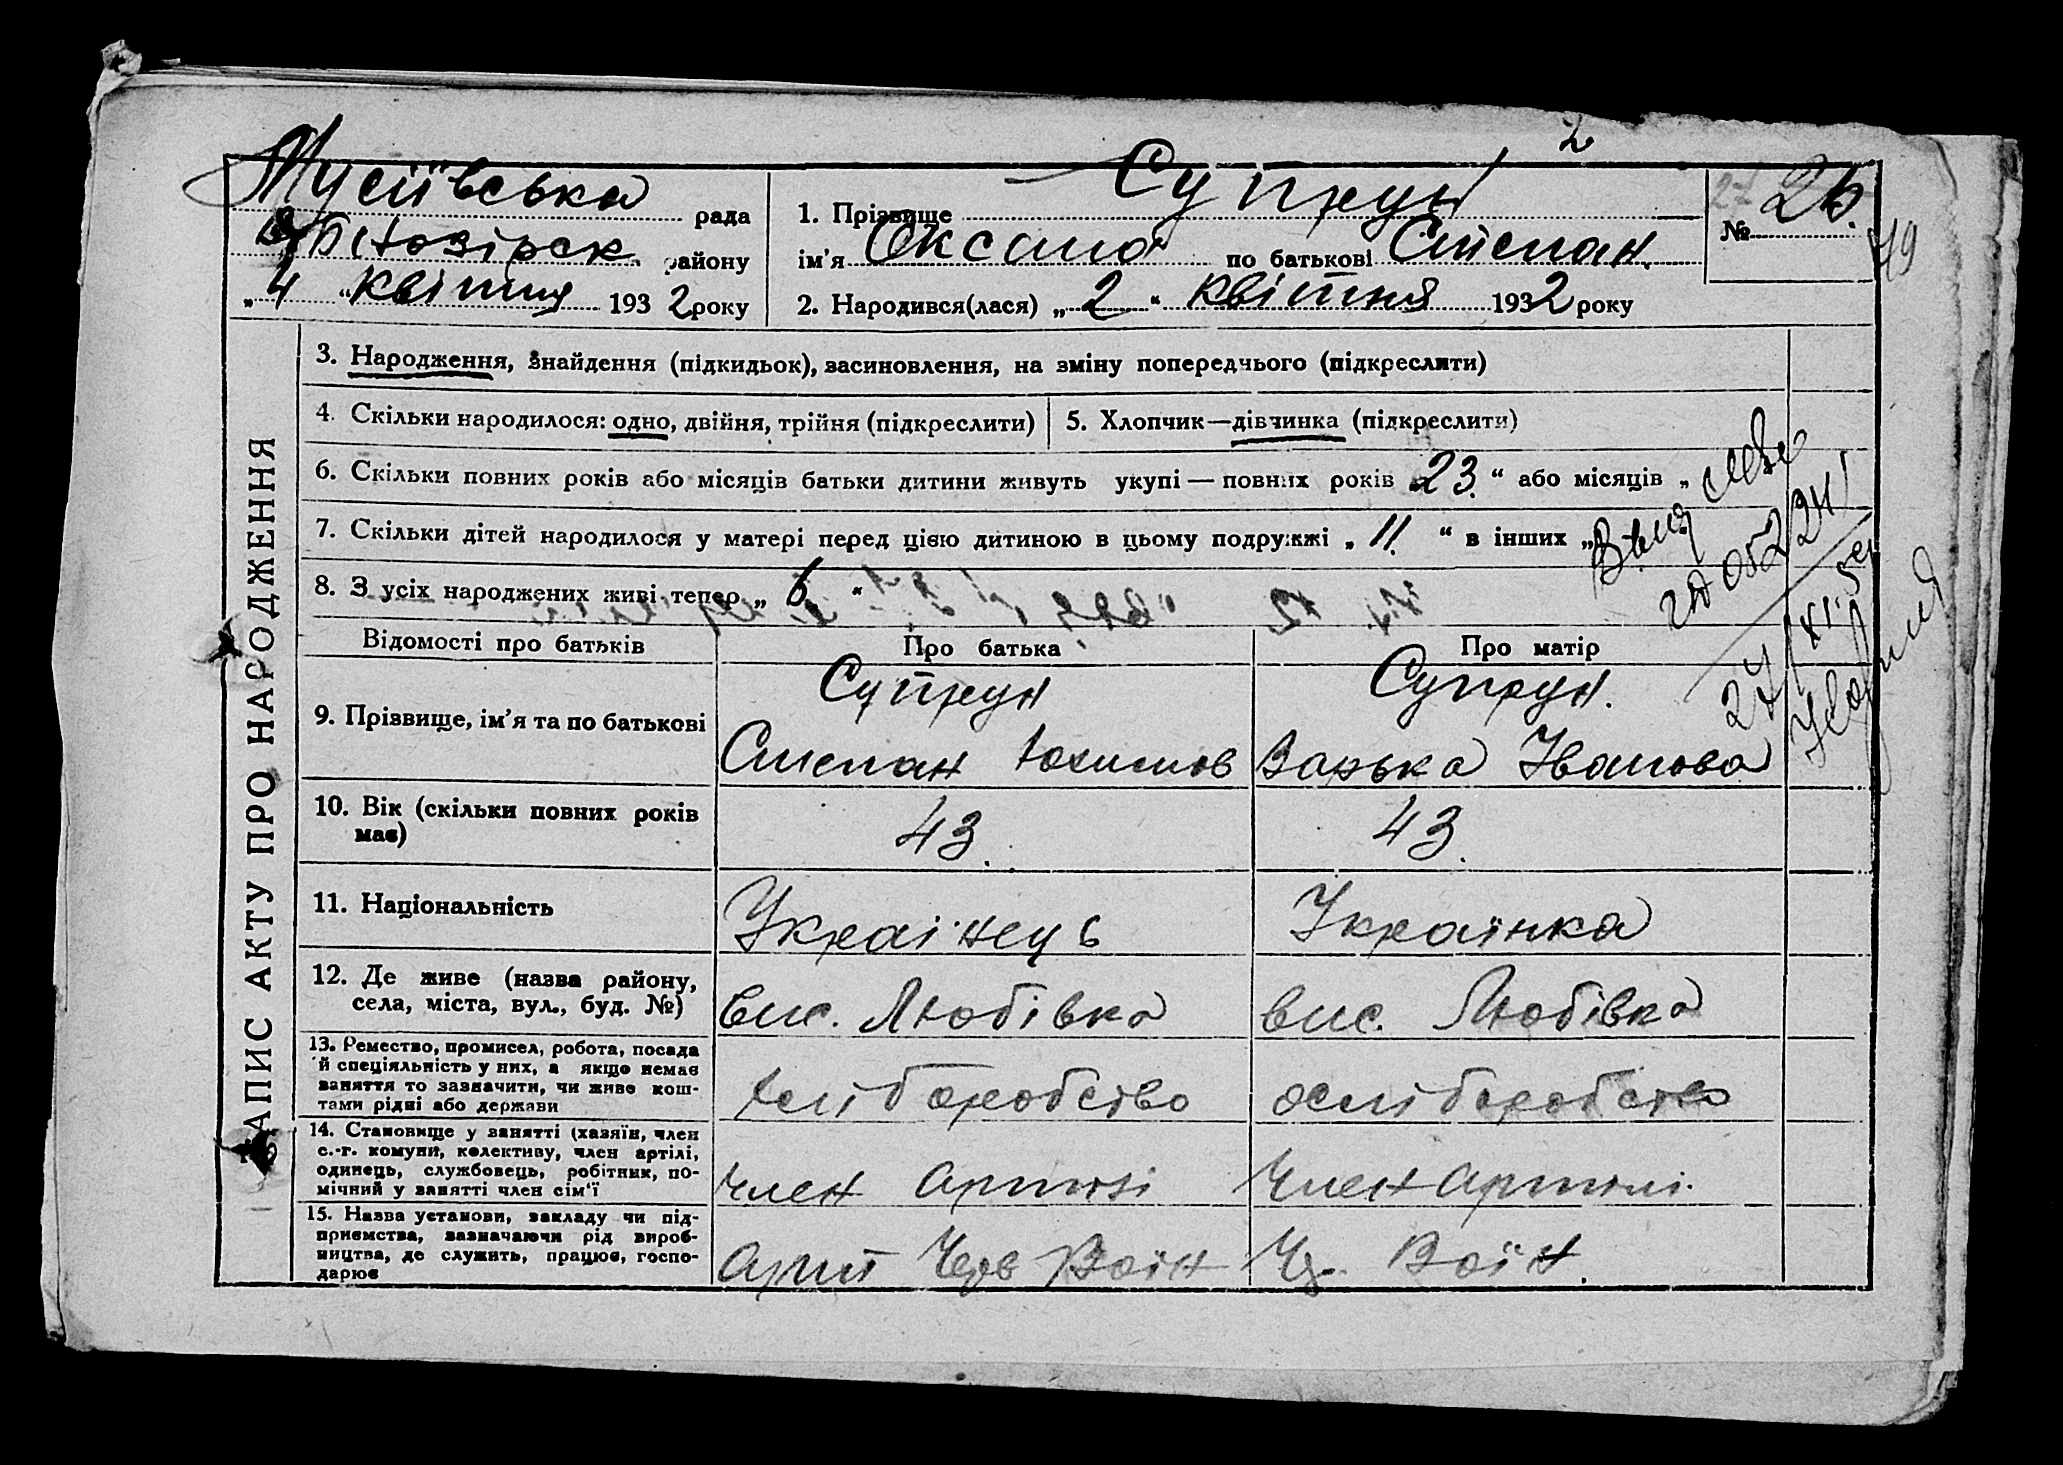 2
Мусіївська рада
района
„ 4 “ квітня 1932 року
1. Прізвище Супрун
ім'я Оксана по батькові Степан.
2. Народився(лася) „ 2 “ квітня 1932 року
№ 26
49
ЗАПИС АКТУ ПРО НАРОДЖЕННЯ
3. Народження, знайдення (підкидьок), засиновлення, на зміну попереднього (підкреслити)
4. Скільки народилося: одно, двійня, трійня (підкреслити)
5. Хлопчик—дівчинка (підкреслити)
6. Скільки повних років або місяців батьки дитини живуть укупі — повних років „ 23. “ або місяців „
7. Скільки дітей народилося у матері перед цією дитиною в цьому подружжі „ 11. “ в інших „
8. З усіх народжених живі тепер „ 6. “
Відомості про батьків
Про батька
Про матір
9. Прізвище, ім'я та по батькові
Супрун
Степан Юхимов
Супрун.
Варька Іванова
10. Вік (скільки повних років
має)
43.
43.
11. Національність
Украінець
Українка
12. Де живе (назва району,
села, міста, вул., буд. №)
вис. Любівка
вис. Любівка
13. Ремество, промисел, робота, посада
й спеціяльність у них, а якщо немає
заняття то зазначити, чи живе кош-
тами рідні або держави
14. Становище у занятті (хазяїн, член
с.-г. комуни, колективу, член артілі,
одинець, службовець, робітник, по-
мічний у занятті член сім'ї
член
Член артілі.
15. Назва установи, закладу чи під-
приємства, зазначаючи рід вироб-
ництва, де служить, працює, госпо-
дарює
Арт Черв Воїн
Чер. Воїн.